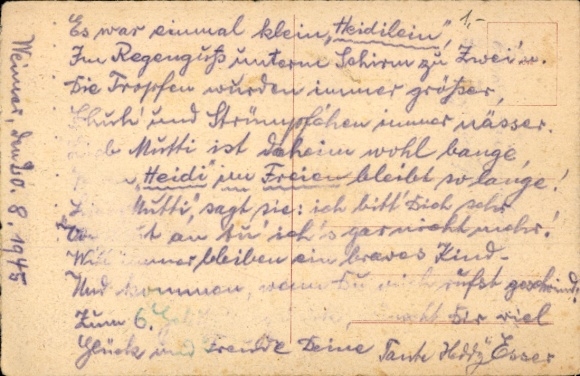 1.-
Es war einmal klein „Heidilein",
Im Regenguß unterm Schirm zu Zwei'n.
Die Tropfen wurden immer größer,
Schuh' und Strümpfchen immer nässer.
Mutti ist daheim wohl bange,
"Heidi" im Freien bleibt so lange!
Mutti", sagt sie: ich bitt' Dich sehr
an tu' ich's gar nicht mehr!
Will immer bleiben ein braves Kind-
Und kommen, wenn Du mich rufst geschwind!
Zum 6. Dir viel
Glück und Freude Deine Tante Heddy Esser
Wemer, den 20. 8. 1945